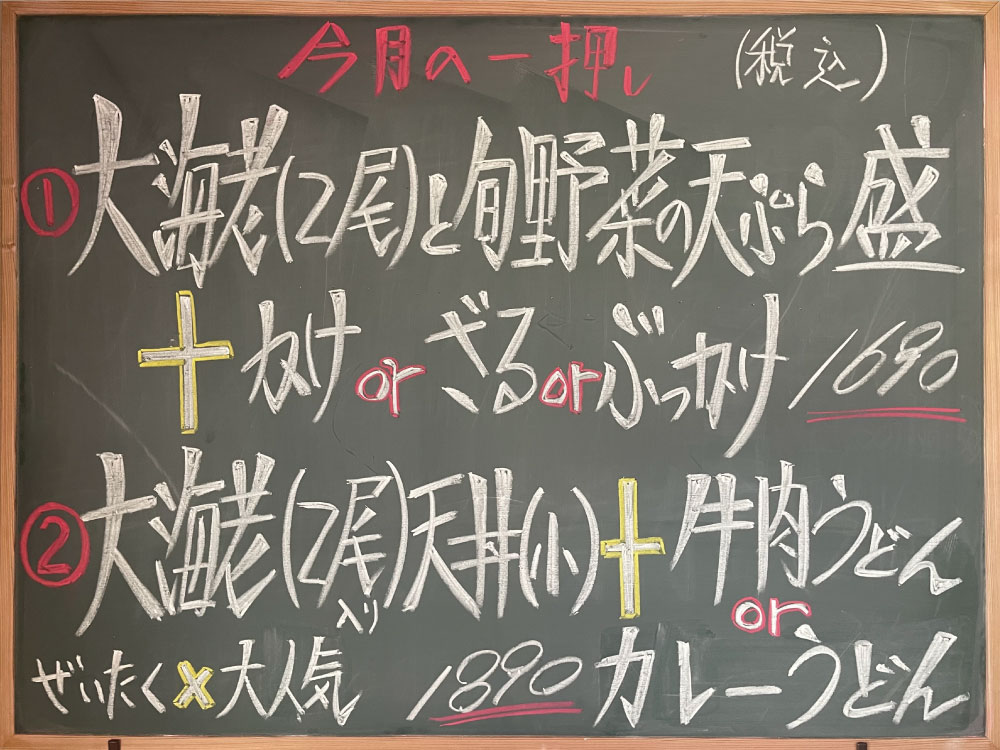 今月の一押し (税込)
① 大海老(2尾)と旬野菜の天ぷら盛
+かけ or ざる or ぶっかけ 1690
② 大海老(2尾)入り天丼(小)+牛肉うどん
or
ぜいたく×大人気 1890 カレーうどん